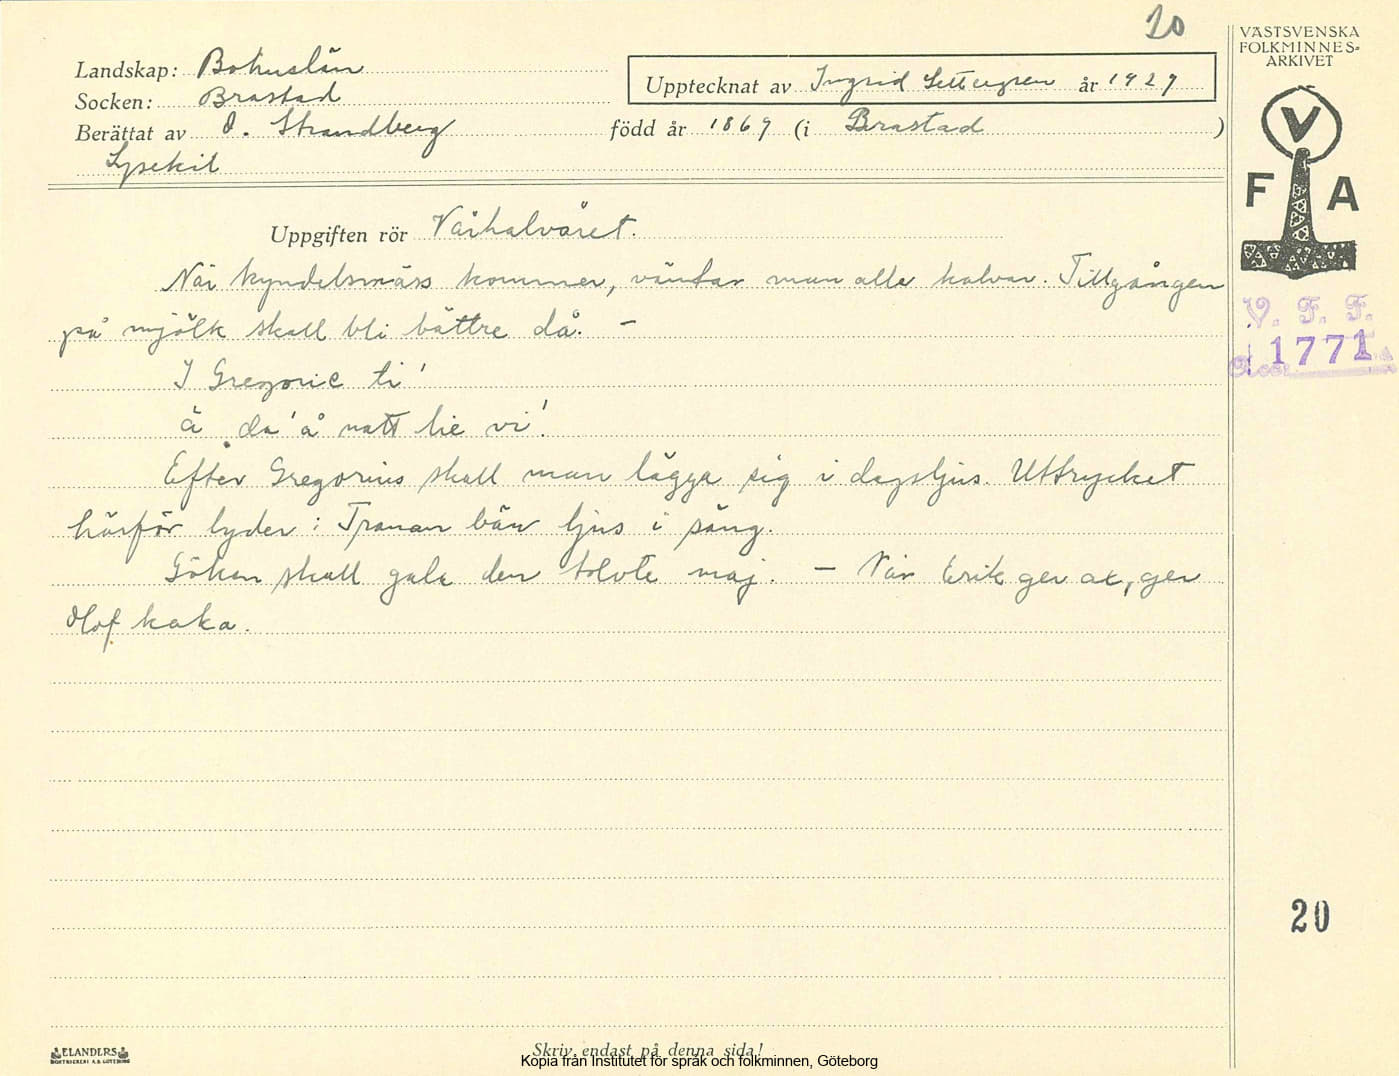 20
VÄSTSVENSKA
FOLKMINNES-
ARKIVET
Landskap: Bohuslän
Upptecknat av Ingrid Settergren år 1927
Socken: Brastad
Berättat av O. Strandberg född år 1869 (i Brastad )
Lysekil
V
F A
Uppgiften rör Vårhalvåret.
När kyndelsmäss kommer, väntar man alla kalvar. Tillgången
på mjölk skall bli bättre då. –
I Gregorie ti'
ä da' å natt lie vi'.
Efter Gregorius skall man lägga sig i dagsljus. Uttrycket
härför lyder: Tranan bär ljus i säng.
Göken skall gala den tolvte maj. – När Erik ger ax, ger
Olof kaka.
V. F. F.
Acc. 1771
20
ELANDERS
BOKTRYCKERI A. B. GÖTEBORG
Skriv endast på denna sida!
Kopia från Institutet för språk och folkminnen, Göteborg